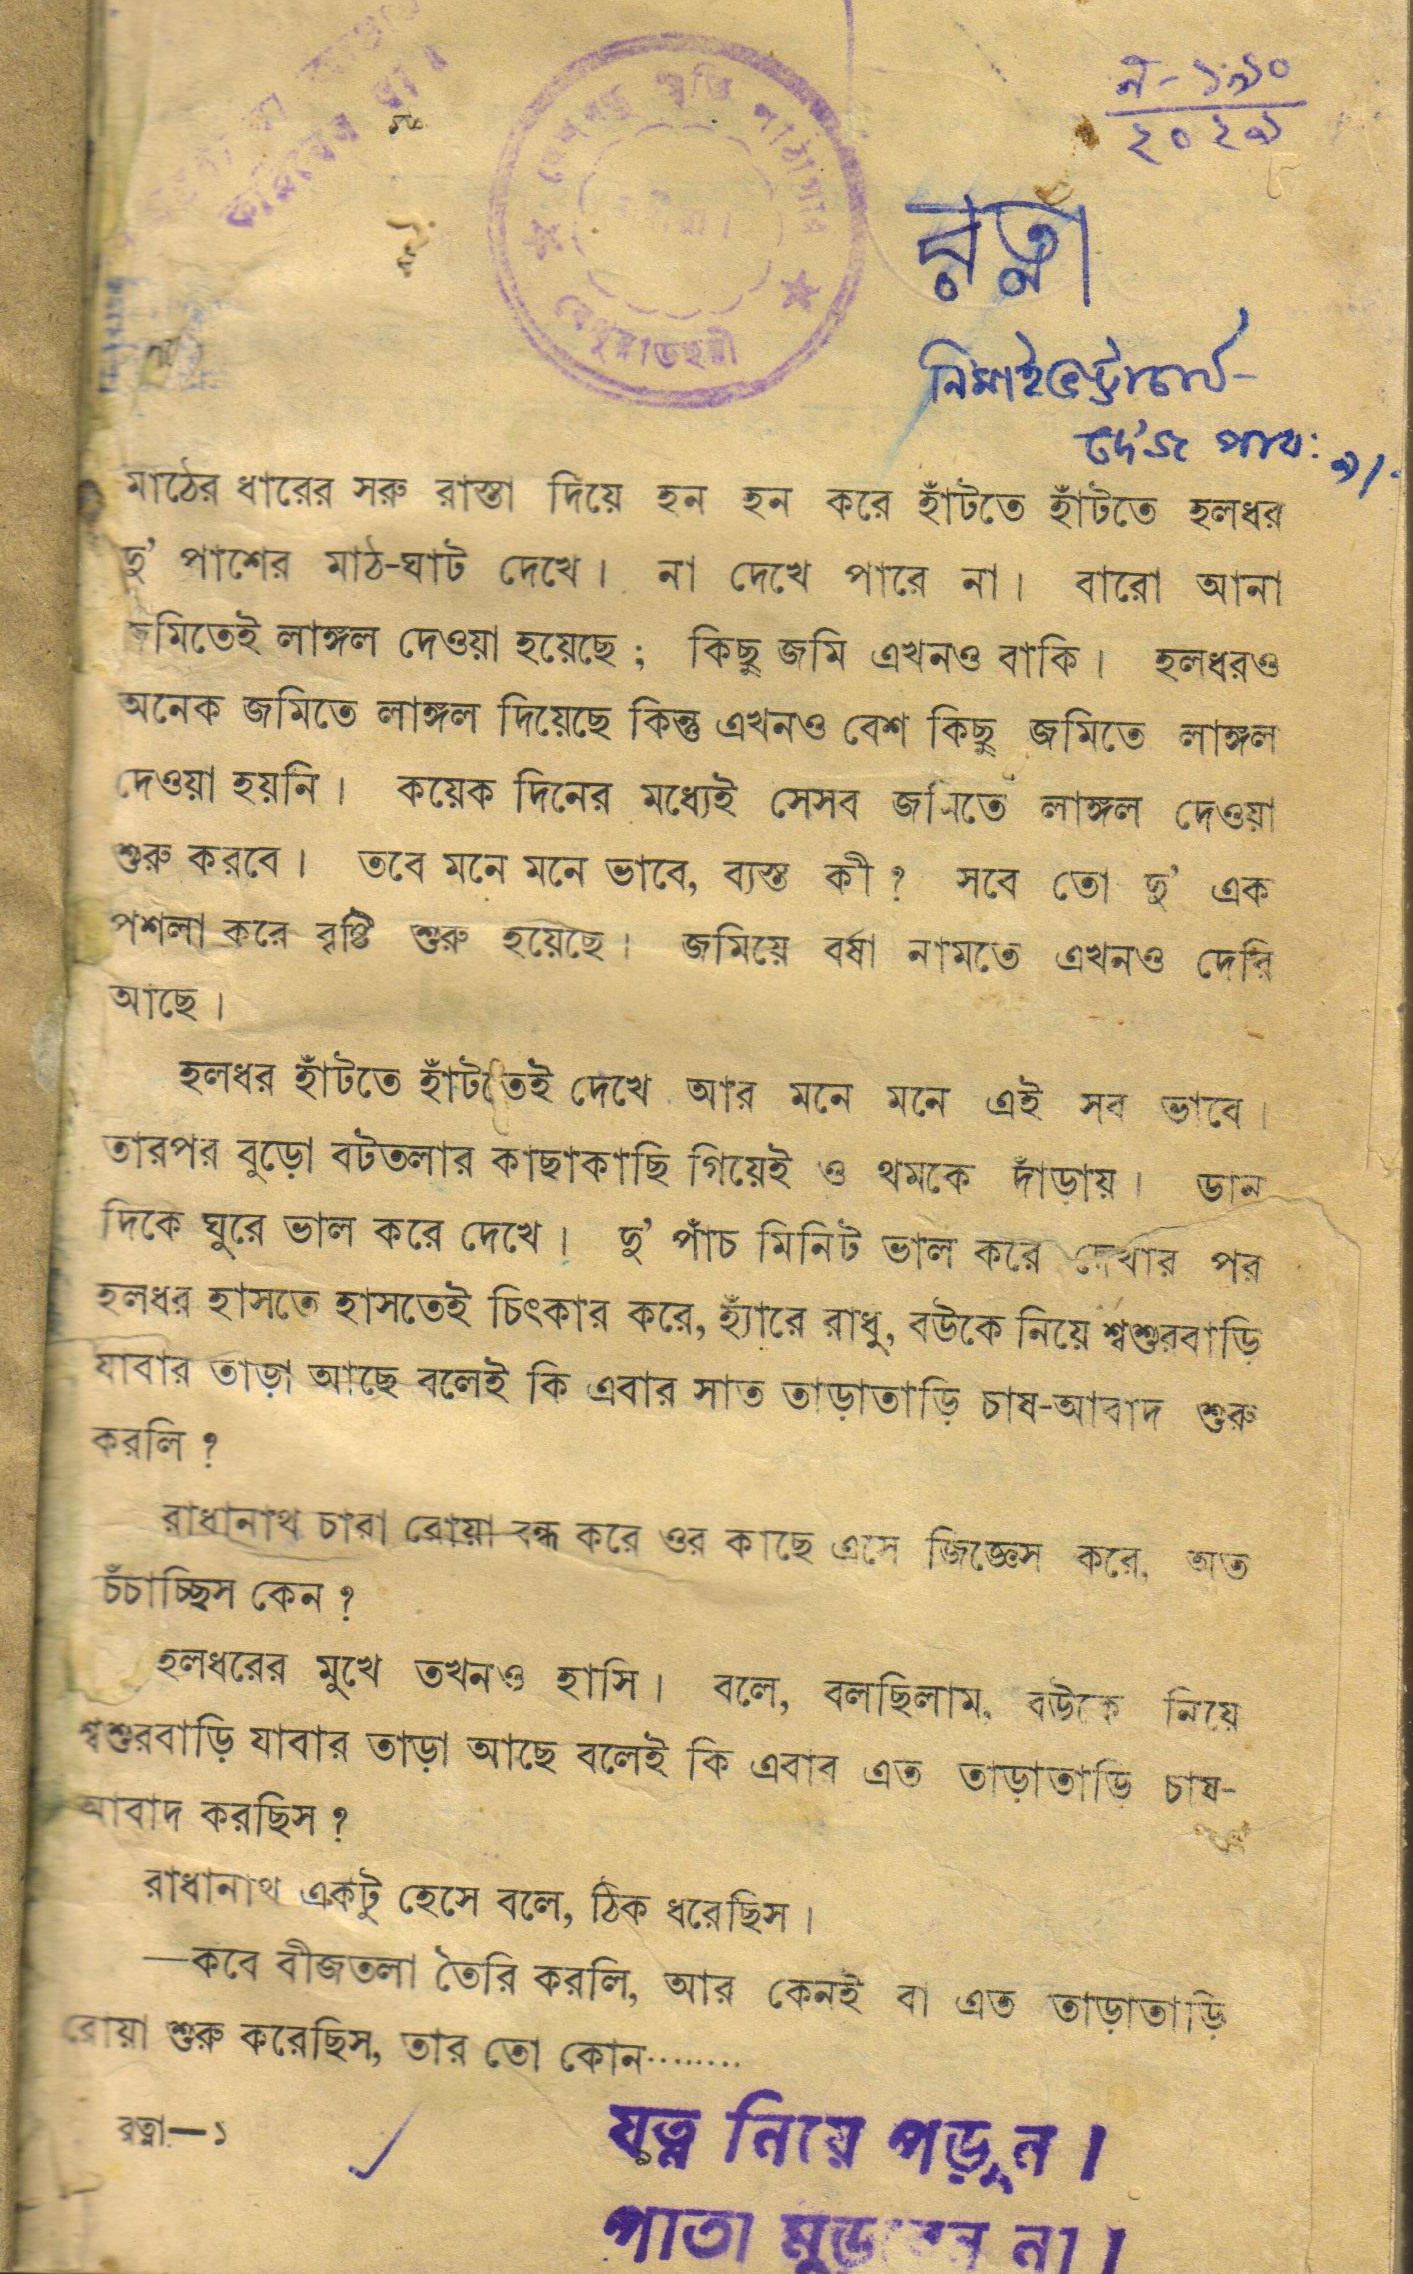 ন-১৯১০
২০২৯
স্মৃতি পাঠাগার
বেথুয়াডহরী
রত্না
নিমাই ভট্টাচার্য
দে'জ পাব: ৯/-
মাঠের ধারের সরু রাস্তা দিয়ে হন হন করে হাঁটতে হাঁটতে হলধর
দু' পাশের মাঠ-ঘাট দেখে। না দেখে পারে না। বারো আনা
জমিতেই লাঙ্গল দেওয়া হয়েছে; কিছু জমি এখনও বাকি। হলধরও
অনেক জমিতে লাঙ্গল দিয়েছে কিন্তু এখনও বেশ কিছু জমিতে লাঙ্গল
দেওয়া হয়নি। কয়েক দিনের মধ্যেই সেসব জমিতে লাঙ্গল দেওয়া
শুরু করবে। তবে মনে মনে ভাবে, ব্যস্ত কী? সবে তো দু' এক
পশলা করে বৃষ্টি শুরু হয়েছে। জমিয়ে বর্ষা নামতে এখনও দেরি
আছে।
হলধর হাঁটতে হাঁটতেই দেখে আর মনে মনে এই সব ভাবে।
তারপর বুড়ো বটতলার কাছাকাছি গিয়েই ও থমকে দাঁড়ায়। ডান
দিকে ঘুরে ভাল করে দেখে। দু' পাঁচ মিনিট ভাল করে দেখার পর
হলধর হাসতে হাসতেই চিৎকার করে, হ্যাঁরে রাধু, বউকে নিয়ে শ্বশুরবাড়ি
যাবার তাড়া আছে বলেই কি এবার সাত তাড়াতাড়ি চাষ-আবাদ শুরু
করলি?
রাধানাথ চারা রোয়া বন্ধ করে ওর কাছে এসে জিজ্ঞেস করে, অত
চঁচাচ্ছিস কেন?
হলধরের মুখে তখনও হাসি। বলে, বলছিলাম, বউকে নিয়ে
শ্বশুরবাড়ি যাবার তাড়া আছে বলেই কি এবার এত তাড়াতাড়ি চাষ-
আবাদ করছিস?
রাধানাথ একটু হেসে বলে, ঠিক ধরেছিস।
—কবে বীজতলা তৈরি করলি, আর কেনই বা এত তাড়াতাড়ি
রোয়া শুরু করেছিস, তার তো কোন........
রত্না—১
যত্ন নিয়ে পড়ুন।
পাতা মুড়বেন না।